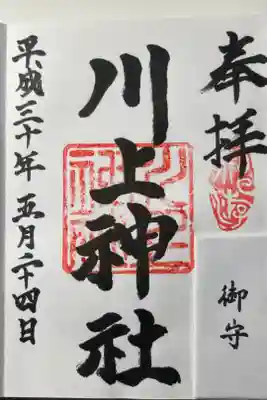 奉拝
川上神社
平成三十年五月二十四日
御守